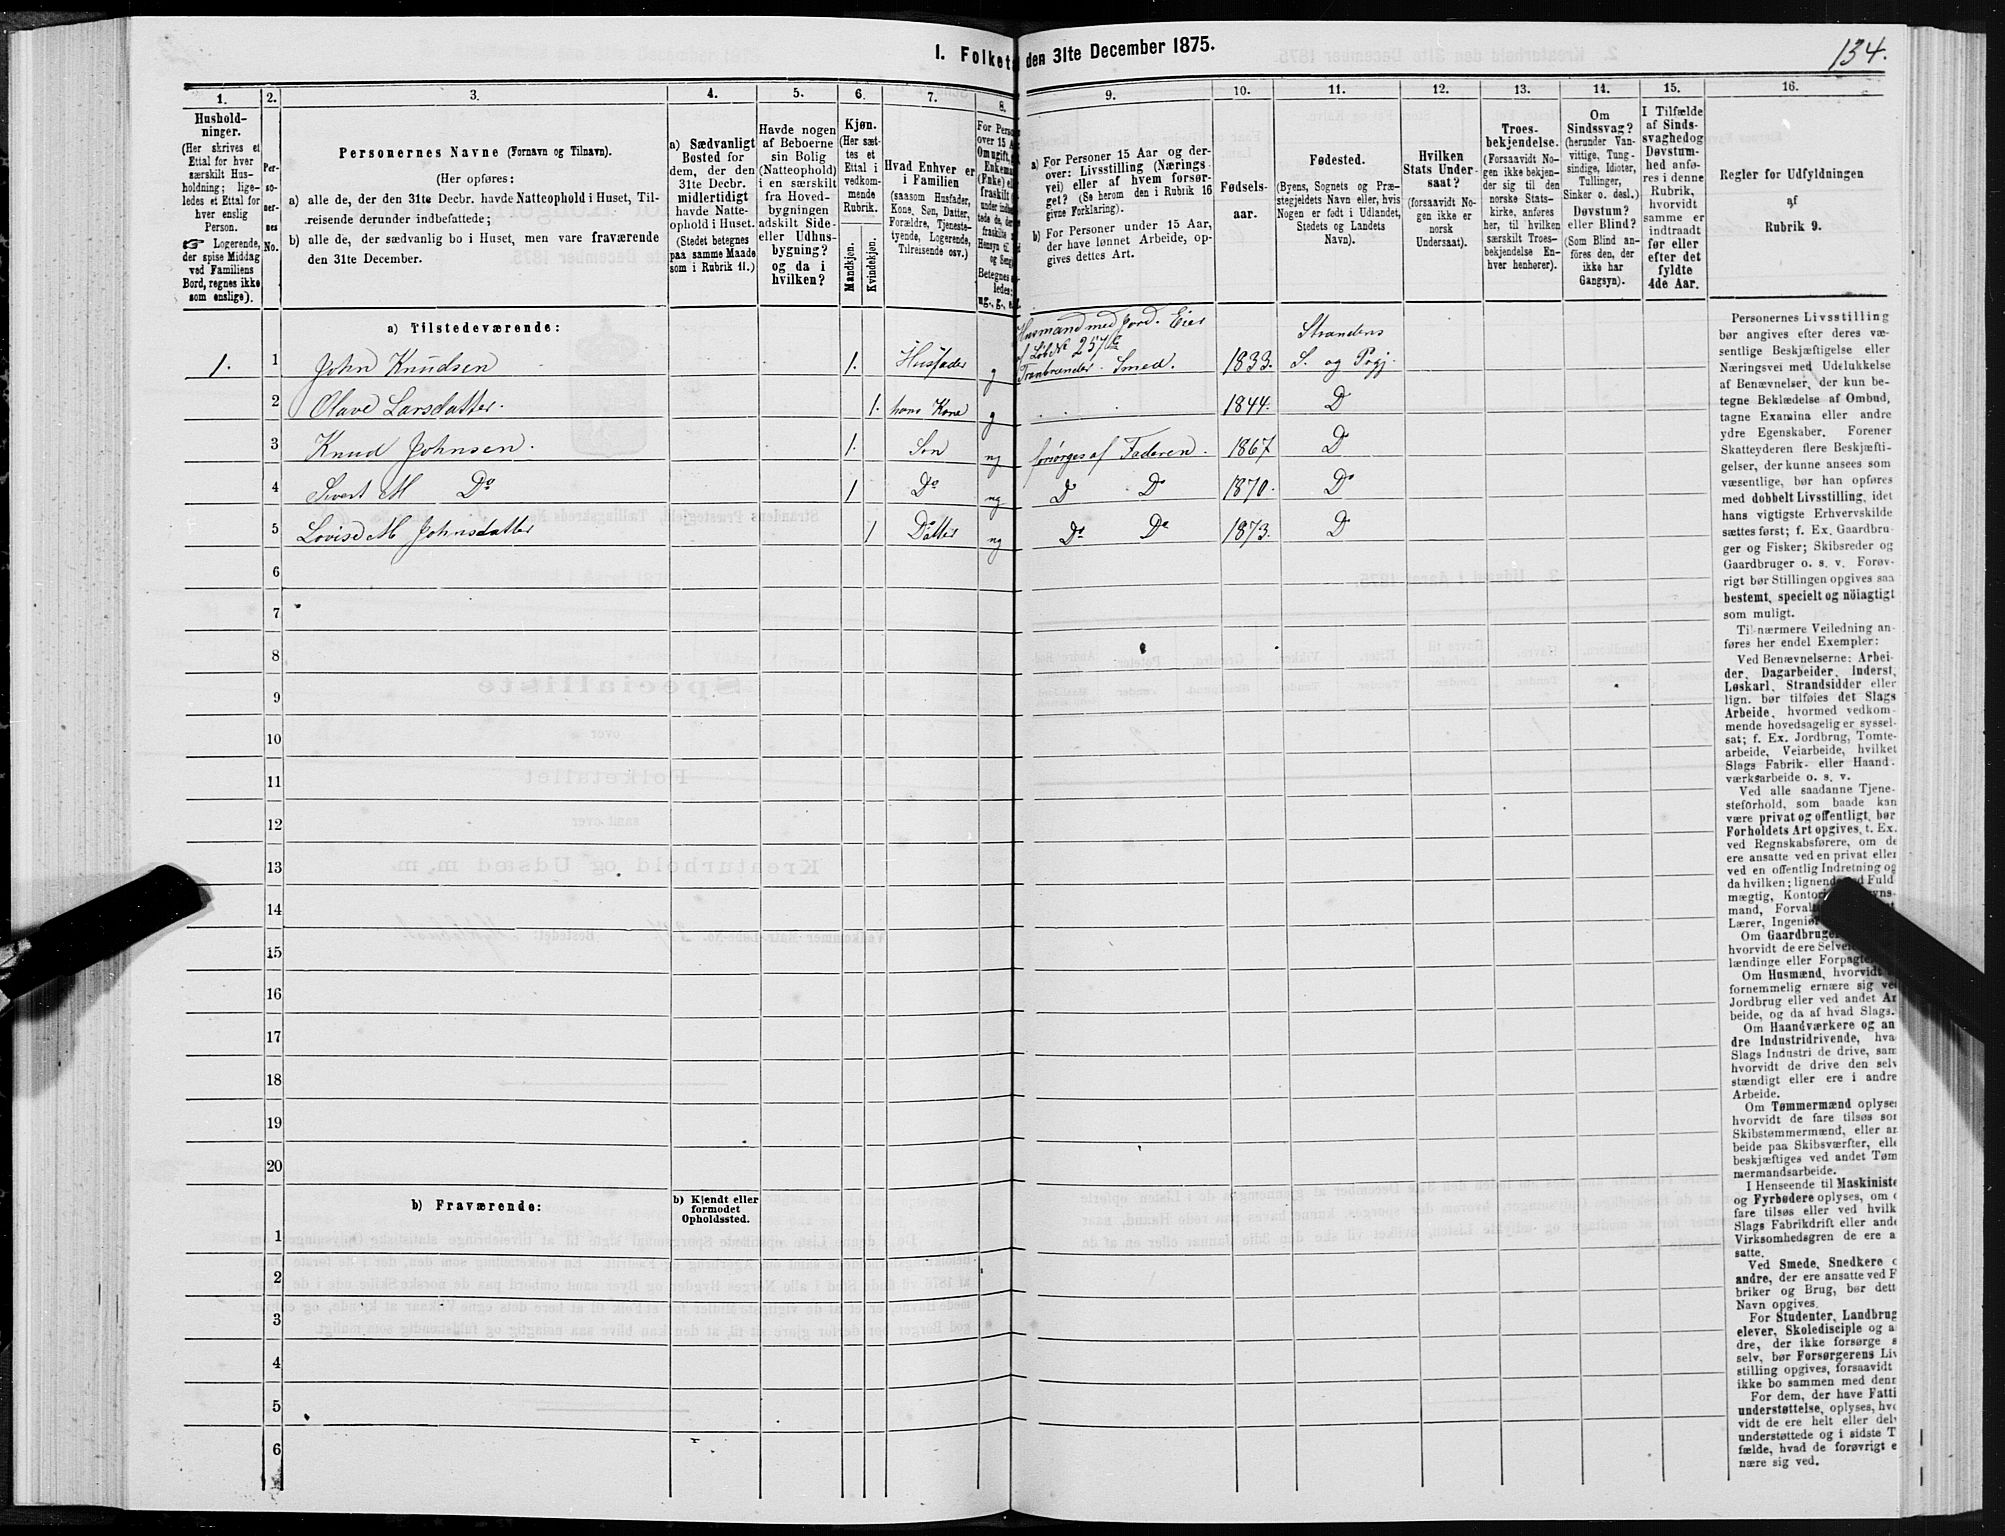 I. Folketa den 31te December 1875.
134.
1.
2.
3.
4.
5.
6.
7.
8.
9.
10.
11.
12.
13.
14.
15.
16.
Hushold-
ninger.
(Her skrives et
Ettal for hver
særskilt Hus-
holdning; lige-
ledes et Ettal for
hver enslig
Person.
☞ Logerende,
der spise Middag
ved Familiens
Bord, regnes ikke
som enslige).
Per-
so-
ner-
nes
No.
Personernes Navne (Fornavn og Tilnavn).
(Her opføres:
a) alle de, der den 31te Decbr. havde Natteophold i Huset, Til-
reisende derunder indbefattede;
b) alle de, der sædvanlig bo i Huset, men vare fraværende
den 31te December.
a) Sædvanligt
Bosted for
dem, der den
31te Decbr.
midlertidigt
havde Natte-
ophold i Huset.
(Stedet betegnes
paa samme Maade
som i Rubrik 11.)
Havde nogen
af Beboerne
sin Bolig
(Natteophold)
i en særskilt
fra Hoved-
bygningen
adskilt Side-
eller Udhus-
bygning?
og da i
hvilken?
Kjøn.
(Her sæt-
tes et
Ettal i
vedkom-
mende
Rubrik.
Mandkjøn.
Kvindekjøn.
Hvad Enhver er
i Familien
(saasom Husfader,
Kone, Søn, Datter,
Forældre, Tjeneste-
tyende, Logerende,
Tilreisende osv.)
For Perso
over 15 A
Om ugift,
Enkema
(Enke) el
fraskilt
under indbe
tede de, der
fraskilte
Hensyn til
og Seng
Betegnes s
ledes:
ug., g., e
a) For Personer 15 Aar og der-
over: Livsstilling (Nærings-
vei) eller af hvem forsør-
get? (Se herom den i Rubrik 16
givne Forklaring).
b) For Personer under 15 Aar,
der have lønnet Arbeide, op-
gives dettes Art.
Fødsels-
aar.
Fødested.
(Byens, Sognets og Præ-
stegjeldets Navn eller, hvis
Nogen er født i Udlandet,
Stedets og Landets
Navn).
Hvilken
Stats Under-
saat?
(forsaavidt No-
gen ikke er
norsk
Undersaat).
Troes-
bekjendelse.
(Forsaavidt No-
gen ikke bekjen-
der sig til den
norske Stats-
kirke, anføres
her, til hvilken
særskilt Troes-
bekjendelse En-
hver henhører).
Om
Sindssvag?
(herunder Van-
vittige, Tung-
sindige, Idioter,
Tullinger,
Sinker o. desl.)
Døvstum?
eller Blind?
(Som Blind an-
føres den, der
ikke har
Gangsyn).
I Tilfælde
af Sinds-
svaghed og
Døvstum-
hed anfø-
res i denne
Rubrik,
hvorvidt
samme er
indtraadt
før eller
efter det
fyldte
4de Aar.
Regler for Udfyldningen
af
Rubrik 9.
a) Tilstedeværende:
1. 1 John Knudsen 1. Husfader g Husmand med Jord. Eier
af LøbNr 257
Tranbrænder. Smed. 1833. Strandens
S. og Pgj.
2 Olave Larsdatter. 1. hans Kone g 1844. D
3 Knud Johnsen. 1. Søn ug forsørges af Faderen. 1867 D
4 Sivert M Do 1 Do ug D D 1870. Do
5 Lovise M Johnsdatter 1 Datter ug Do Do 1873. D
6
7
8
9
10
11
12
13
14
15
16
17
18
19
20
b) Fraværende:
b) Kjendt eller
formodet
Opholdssted.
1
2
3
4
5
6
Personernes Livsstilling
bør angives efter deres væ-
sentlige Beskjæftigelse eller
Næringsvei med Udelukkelse
af Benævnelser, der kun be-
tegne Beklædelse af Ombud,
tagne Examina eller andre
ydre Egenskaber. Forener
Skatteyderen flere Beskjæfti-
gelser, der kunne ansees som
væsentlige, bør han opføres
med dobbelt Livsstilling, idet
hans vigtigste Erhvervskilde
sættes først; f. Ex. Gaardbru-
ger og Fisker; Skibsreder og
Gaardbruger o. s. v. Forøv-
rigt bør Stillingen opgives saa
bestemt, specielt og nöiagtigt
som muligt.
Til nærmere Veiledning an-
føres her endel Exempler:
Ved Benævnelserne: Arbei-
der, Dagarbeider, Inderst,
Løskarl, Strandsidder eller
lign. bør tilføies det Slags
Arbeide, hvormed vedkom-
mende hovedsagelig er syssel-
sat; f. Ex. Jordbrug, Tomte-
arbeide, Veiarbeide, hvilket
Slags Fabrik- eller Haand-
værksarbeide o. s. v.
Ved alle saadanne Tjene-
steforhold, som baade kan
være privat og offentligt, bør
Forholdets Art opgives, t. Ex.
ved Regnskabsførere, om de
ere ansatte ved en privat eller
ved en offentlig Indretning og
da hvilken; lignende ved Fuld-
mægtig, Kontori
mand, Forval
Lærer, Ingeniør
Om Gaardbruger
hvorvidt de ere Selveie
lændinge eller Forpagte
Om Husmænd, hvorvidt
fornemmelig ernære sig ve
Jordbrug eller ved andet Ar
beide, og da af hvad Slags.
Om Haandværkere og an
dre Industridrivende, hva
Slags Industri de drive, sam
hvorvidt de drive den selv
stændigt eller ere i andre
Arbeide.
Om Tømmermænd oplyses
hvorvidt de fare tilsøs som
Skibstømmermænd, eller ar
beide paa Skibsværfter, elle
beskjæftiges ved andet Tøm
mermandsarbeide.
I Henseende til Maskiniste
og Fyrbødere oplyses, om d
fare tilsøs eller ved hvilk
Slags Fabrikdrift eller ande
Virksomhedsgren de ere a
satte.
Ved Smede, Snedkere o
andre, der ere ansatte ved F
briker og Brug, bør dett
Navn opgives.
For Studenter, Landbrug
elever, Skoledisciple og a
dre, der ikke forsørge s
selv, bør Forsørgerens Liv
stilling opgives, forsaavidt
ikke bo sammen med denn
For dem, der have Fatti
understøttelse, oplyses, hvo
vidt de ere helt eller delv
understøttede og i sidste T
fælde, hvad de forøvrigt e
nære sig ved.